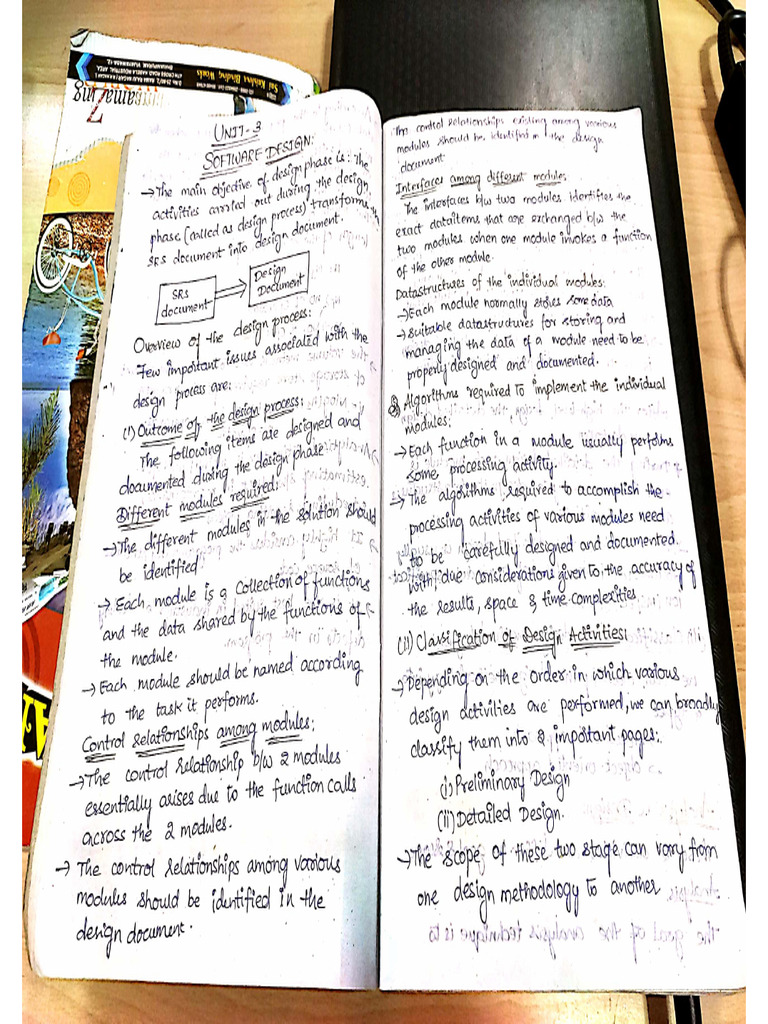 UNIT-3
SOFTWARE DESIGN:
→The main objective of design phase is: The
activities carried out during the design
phase (called as design process) transforms the
SRS document into design document.
SRS
document
Design
Document
Overview of the design process:
Few important issues associated with the
design process are:
(i) Outcome of the design process:
The following items are designed and
documented during the design phase
Different modules required:
→The different modules in the solution should
be identified
→ Each module is a collection of functions
and the data shared by the functions of
the module.
→ Each module should be named according
to the task it performs.
Control Relationships among modules:
→ The control relationship b/w 2 modules
essentially arises due to the function calls
across the 2 modules.
→ The control relationships among various
modules should be identified in the
design document.
The control Relationships existing among various
modules should be identified in the design
document
Interfaces among different modules
The interfaces b/w two modules identifies the
exact dataitems that are exchanged b/w the
two modules when one module invokes a function
of the other module.
Datastructures of the individual modules:
→Each module normally stores some data
→Suitable datastructures for storing and
managing the data of a module need to be
properly designed and documented.
Algorithms required to implement the individual
modules:
→ Each function in a module usually performs
some processing activity.
→ The algorithms required to accomplish the
processing activities of various modules need
to be carefully designed and documented.
with due considerations given to the accuracy of
the results, space & time complexities
(ii) Classification of Design Activities:
→ Depending on the order in which various
design activities are performed, we can broadly
classify them into 2 important pages:
(i) Preliminary Design
(ii) Detailed Design.
→ The scope of these two stage can vary from
one design methodology to another
Sai Krishna Binding Works